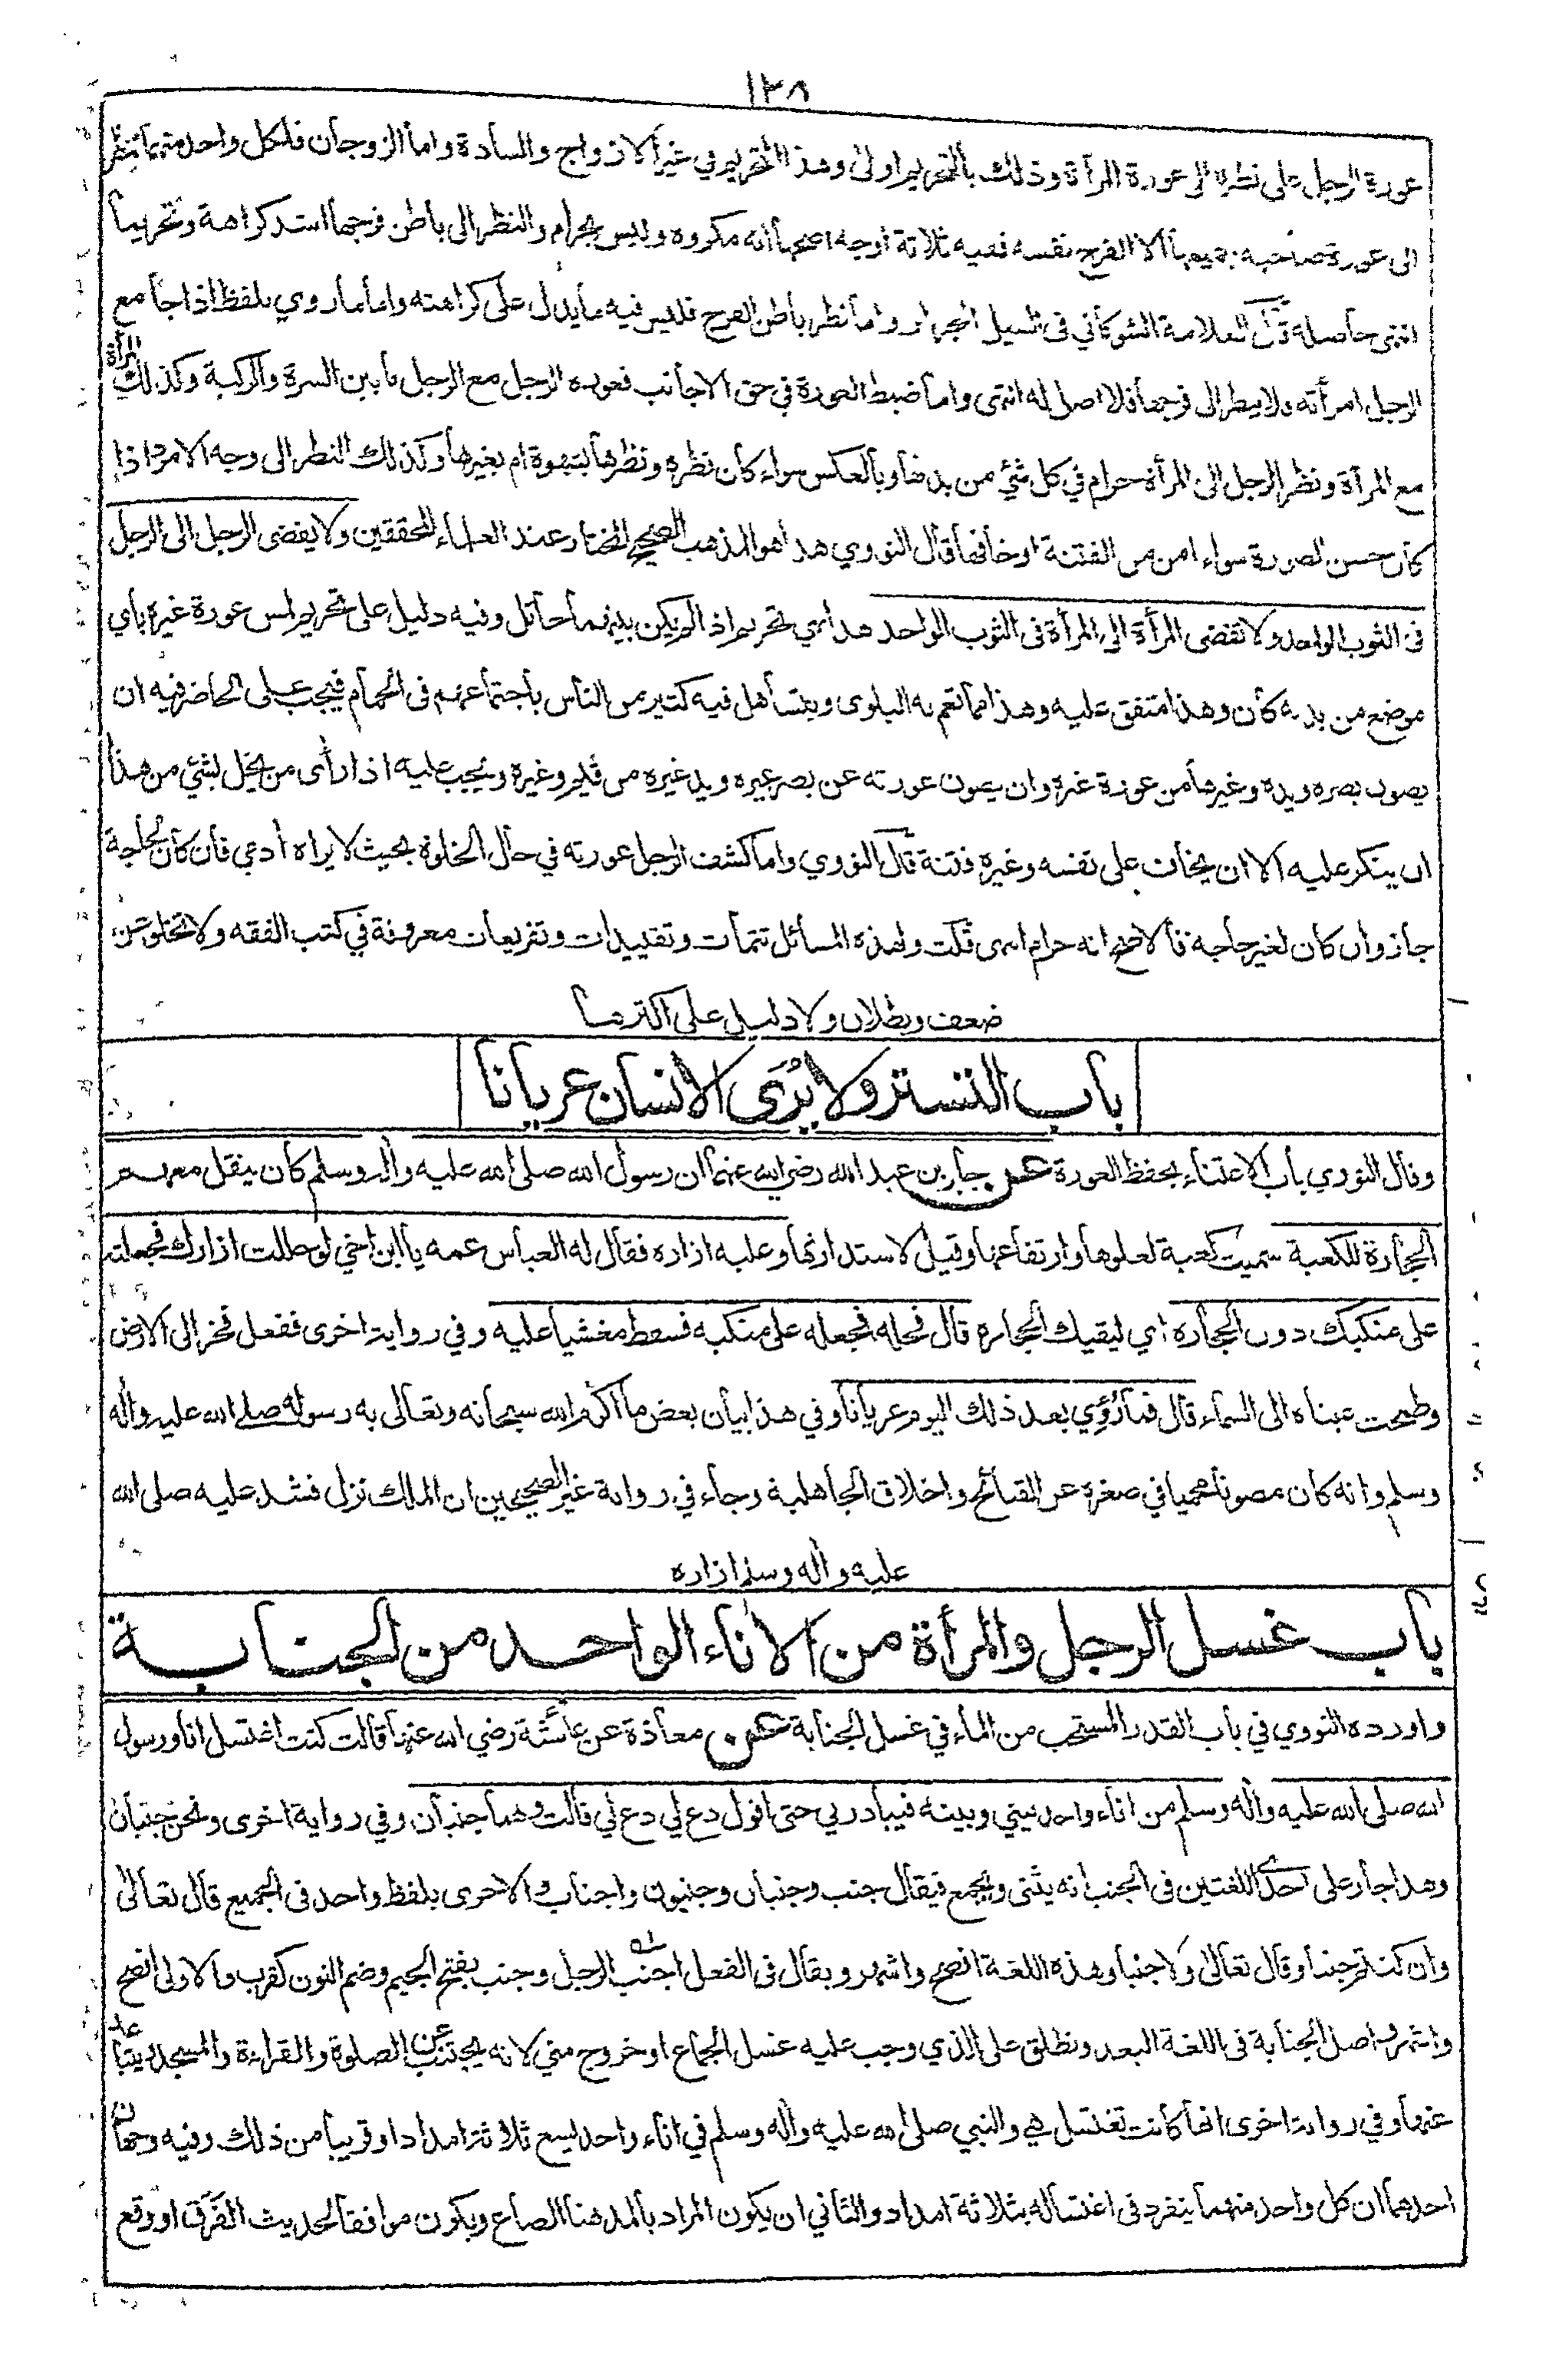 ١٣٨
عورة الرجل على نظره الى عورة المرأة وذلك بالتحريم اولى وهذا التحريم في غير الازواج والسادة واما الزوجان فلكل واحد منهما نظر
الى عورة صاحبه جميعها الا الفرج نفسه ففيه ثلاثة اوجه اصحها انه مكروه وليس بحرام والنظر الى باطن فرجها اشد كراهة وتحريما
انتهى حاصله قال العلامة الشوكاني في السيل الجرار واما نظر باطن الفرج فليس فيه ما يدل على كراهته واما ما روي بلفظ اذا جامع
الرجل امرأته ولا ينظر الى فرجها فلا اصل له انتهى واما ضبط العورة في حق الاجانب فعورة الرجل مع الرجل ما بين السرة والركبة وكذلك المرأة
مع المرأة ونظر الرجل الى المرأة حرام في كل شئ من بدنها وبالعكس سواء كان نظره ونظرها بشهوة ام بغيرها وكذلك النظر الى وجه الامرد اذا
كان حسن الصورة سواء امن من الفتنة او خافها قال النووي هذا هو المذهب الصحيح المختار عند العلماء المحققين ولا يفضى الرجل الى الرجل
فى الثوب الواحد ولا تفضى المرأة الى المرأة فى الثوب الواحد هذا نهي تحريم اذا لم يكن بينهما حائل وفيه دليل على تحريم لمس عورة غيره باي
موضع من بدنه كان وهذا متفق عليه وهذا مما تعم به البلوى ويتساهل فيه كثير من الناس باجتماعهم فى الحمام فيجب على الحاضر فيه ان
يصون بصره ويده وغيرها من عورة غيره وان يصون عورته عن بصر غيره ويد غيره من قيم وغيره ويجب عليه اذا رأى من يخل بشئ من هذا
ان ينكر عليه الا ان يخاف على نفسه وغيره فتنة قال النووي واما كشف الرجل عورته في حال الخلوة بحيث لا يراه أدمي فان كان لحاجة
جاز وان كان لغير حاجة فالاصح انه حرام انتهى قلت ولهذه المسائل تتمات وتقييدات وتفريعات معروفة في كتب الفقه ولا تخلو من
ضعف وبطلان ولا دليل على اكثرها
باب التستر ولا يُرَى الانسان عريانا
وقال النووي باب الاعتناء بحفظ العورة عن جابر بن عبد الله رضي الله عنهما ان رسول الله صلى الله عليه واله وسلم كان ينقل معهم
الحجارة للكعبة سميت كعبة لعلوها وارتفاعها وقيل لاستدارتها وعليه ازاره فقال له العباس عمه يا ابن اخي لو حللت ازارك فجعلته
على منكبك دون الحجارة اي ليقيك الحجارة قال فحله فجعله على منكبه فسقط مغشيا عليه وفي رواية اخرى ففعل فخر الى الارض
وطمحت عيناه الى السماء قال فما رُؤِي بعد ذلك اليوم عريانا وفي هذا بيان بعض ما اكرم الله سبحانه وتعالى به رسوله صلى الله عليه واله
وسلم وانه كان مصونا محميا في صغره عن القبائح واخلاق الجاهلية وجاء في رواية غير الصحيحين ان الملك نزل فشد عليه صلى الله
عليه واله وسلم ازاره
باب غسل الرجل والمرأة من الاناء الواحد من الجنابة
واورده النووي في باب القدر المستحب من الماء في غسل الجنابة عن معاذة عن عائشة رضي الله عنها قالت كنت اغتسل انا ورسول
الله صلى الله عليه واله وسلم من اناء واحد بيني وبينه فيبادرني حتى اقول دع لي دع لي قالت وهما جنبان وفي رواية اخرى ونحن جنبان
وهذا جار على احدى اللغتين فى الجنب انه يثنى ويجمع فيقال جنب وجنبان وجنبون واجناب والاخرى بلفظ واحد فى الجميع قال تعالى
وان كنتم جنبا وقال تعالى ولا جنبا وهذه اللغة افصح واشهر ويقال فى الفعل اجنب الرجل وجنب بفتح الجيم وضم النون كقرب والاولى افصح
واشهر واصل الجنابة فى اللغة البعد وتطلق على الذي وجب عليه غسل الجماع او خروج مني لانه يجتنب عن الصلوة والقراءة والمسجد ويتباعد
عنها وفي رواية اخرى انها كانت تغتسل هي والنبي صلى الله عليه واله وسلم في اناء واحد يسع ثلاثة امداد او قريبا من ذلك وفيه وجهان
احدهما ان كل واحد منهما ينفرد فى اغتساله بثلاثة امداد والثاني ان يكون المراد بالمد هنا الصاع ويكون موافقا لحديث الفَرَق او وقع